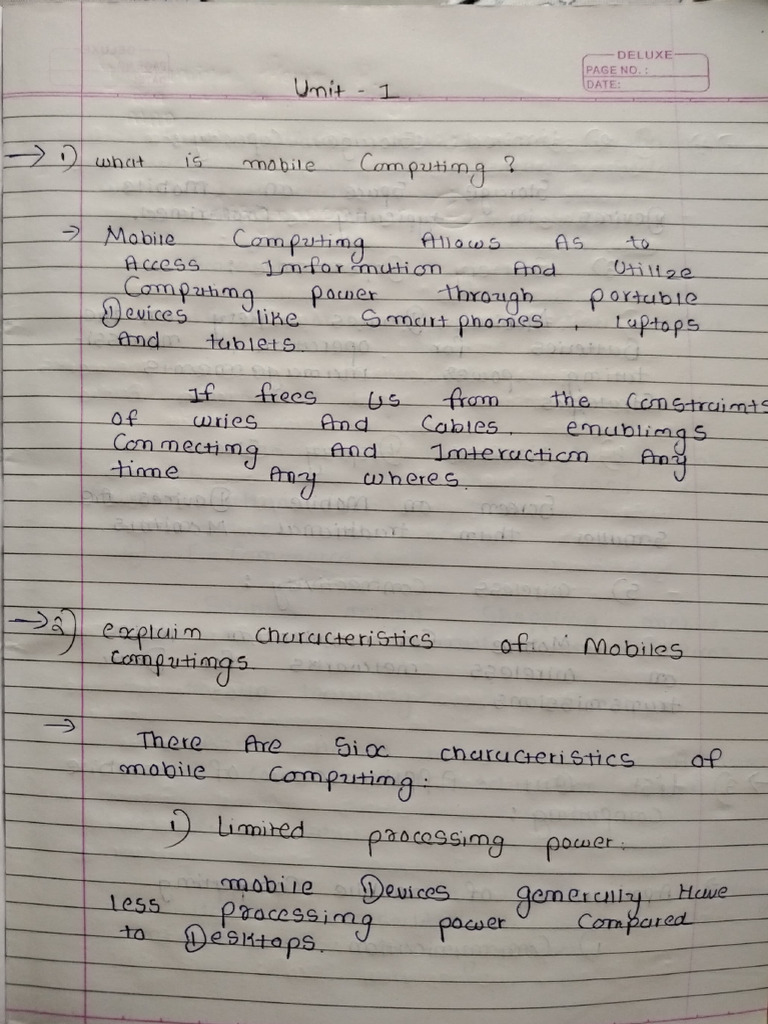 DELUXE
PAGE NO. :
DATE:
Unit - 1
→ 1) what is mobile Computing ?
→ Mobile Computing Allows As to
Access Information And Utilize
Computing power through portable
Devices like Smartphones, laptops
And tablets.
If frees us from the Constraints
of wries And Cables, enublings
Connecting And Interaction Any
time Any wheres.
→ 2) explain characteristics of Mobiles
Computings
→ There Are Six characteristics of
mobile Computing :
i) Limited processing power :
mobile Devices generally Have
less processing power Compared
to Desktops.